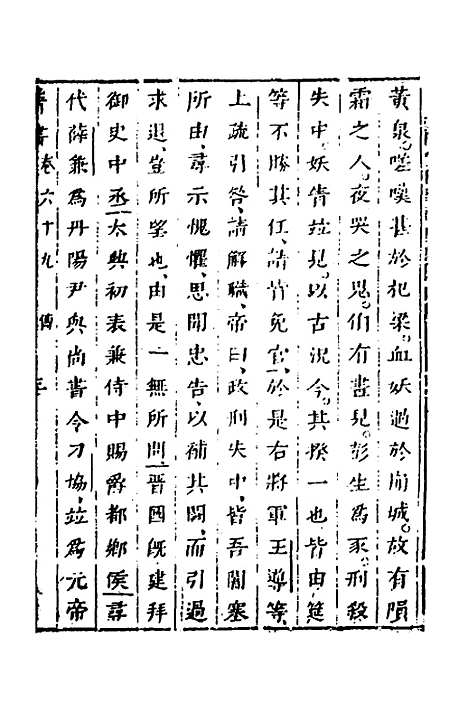 黃泉嗟嘆甚於杞梁血妖過於崩城故有隕
霜之人夜哭之鬼伯有晝見彭生為豕刑殺
失中妖眚竝見以古況今其揆一也皆由筵
等不勝其任請皆免官於是右將軍王導等
上疏引咎請解職帝曰政刑失中皆吾闇塞
所由尋示愧懼思聞忠告以補其闕而引過
求退豈所望也由是一無所問晉國既建拜
御史中丞太興初表兼侍中賜爵都鄉侯尋
代薛兼為丹陽尹與尚書令刁協竝為元帝
晉書卷六十九 傳